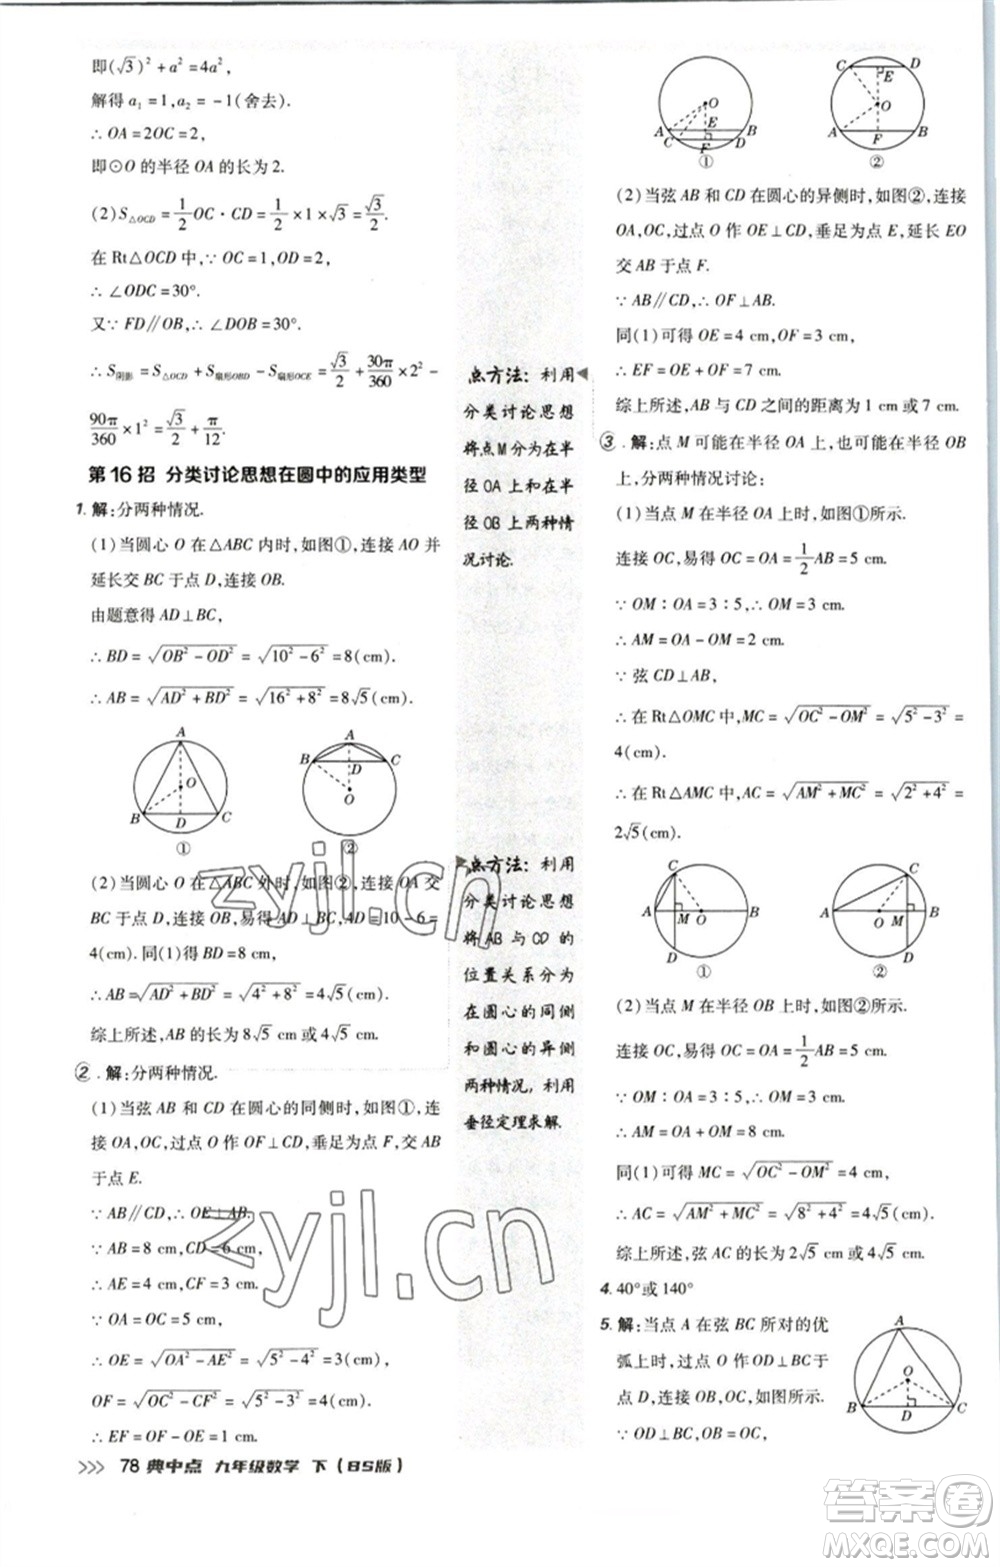 即(√3)²+a²=4a²,
解得 a₁=1,a₂=-1(舍去).
∴ OA=2OC=2,
即⊙O 的半径 OA 的长为 2.
(2) S△OCD=1/2 OC·CD=1/2×1×√3=√3/2.
在 Rt△OCD 中,∵ OC=1,OD=2,
∴ ∠ODC=30°.
又∵ FD∥OB,∴ ∠DOB=30°.
∴ S阴影=S△OCD+S扇形OBD-S扇形OCE=√3/2+30π/360×2²-
90π/360×1²=√3/2+π/12.
第 16 招 分类讨论思想在圆中的应用类型
1. 解:分两种情况.
(1)当圆心 O 在△ABC 内时,如图①,连接 AO 并
延长交 BC 于点 D,连接 OB.
由题意得 AD⊥BC,
∴ BD=√(OB²-OD²)=√(10²-6²)=8(cm).
∴ AB=√(AD²+BD²)=√(16²+8²)=8√5(cm).
A
O
B
D
C
①
A
B
D
C
O
②
(2)当圆心 O 在△ABC 外时,如图②,连接 OA 交
BC 于点 D,连接 OB,易得 AD⊥BC,AD=10-6=
4(cm). 同(1)得 BD=8 cm.
∴ AB=√(AD²+BD²)=√(4²+8²)=4√5(cm).
综上所述,AB 的长为 8√5 cm 或 4√5 cm.
2. 解:分两种情况.
(1)当弦 AB 和 CD 在圆心的同侧时,如图①,连
接 OA,OC,过点 O 作 OF⊥CD,垂足为点 F,交 AB
于点 E.
∵ AB∥CD,∴ OE⊥AB.
∵ AB=8 cm,CD=6 cm,
∴ AE=4 cm,CF=3 cm.
∵ OA=OC=5 cm,
∴ OE=√(OA²-AE²)=√(5²-4²)=3(cm),
OF=√(OC²-CF²)=√(5²-3²)=4(cm).
∴ EF=OF-OE=1 cm.
点方法: 利用
分类讨论思想
将点M分为在半
径OA上和在半
径OB上两种情
况讨论.
点方法: 利用
分类讨论思想
将AB与CD的
位置关系分为
在圆心的同侧
和圆心的异侧
两种情况,利用
垂径定理求解.
O
A
E
B
C
F
D
①
C
E
D
O
A
F
B
②
(2)当弦 AB 和 CD 在圆心的异侧时,如图②,连接
OA,OC,过点 O 作 OE⊥CD,垂足为点 E,延长 EO
交 AB 于点 F.
∵ AB∥CD,∴ OF⊥AB.
同(1)可得 OE=4 cm,OF=3 cm.
∴ EF=OE+OF=7 cm.
综上所述,AB 与 CD 之间的距离为 1 cm 或 7 cm.
3. 解:点 M 可能在半径 OA 上,也可能在半径 OB
上,分类讨论如下:
(1)当点 M 在半径 OA 上时,如图①所示.
连接 OC,易得 OC=OA=1/2 AB=5 cm.
∵ OM∶OA=3∶5,∴ OM=3 cm.
∴ AM=OA-OM=2 cm.
∵ 弦 CD⊥AB,
∴ 在 Rt△OMC 中,MC=√(OC²-OM²)=√(5²-3²)=
4(cm).
∴ 在 Rt△AMC 中,AC=√(AM²+MC²)=√(2²+4²)=
2√5(cm).
C
A
M
O
B
D
①
C
A
O
M
B
D
②
(2)当点 M 在半径 OB 上时,如图②所示.
连接 OC,易得 OC=OA=1/2 AB=5 cm.
∵ OM∶OA=3∶5,∴ OM=3 cm.
∴ AM=OA+OM=8 cm.
同(1)可得 MC=√(OC²-OM²)=4 cm,
∴ AC=√(AM²+MC²)=√(8²+4²)=4√5(cm).
综上所述,弦 AC 的长为 2√5 cm 或 4√5 cm.
4. 40°或 140°
5. 解:当点 A 在弦 BC 所对的优
弧上时,过点 O 作 OD⊥BC 于
点 D,连接 OB,OC,如图所示.
∵ OD⊥BC,
A
O
B
D
C
>>> 78 典中点 九年级数学 下(BS版)
zyjl.cn
zyjl.cn
答案圈
MXQE.COM